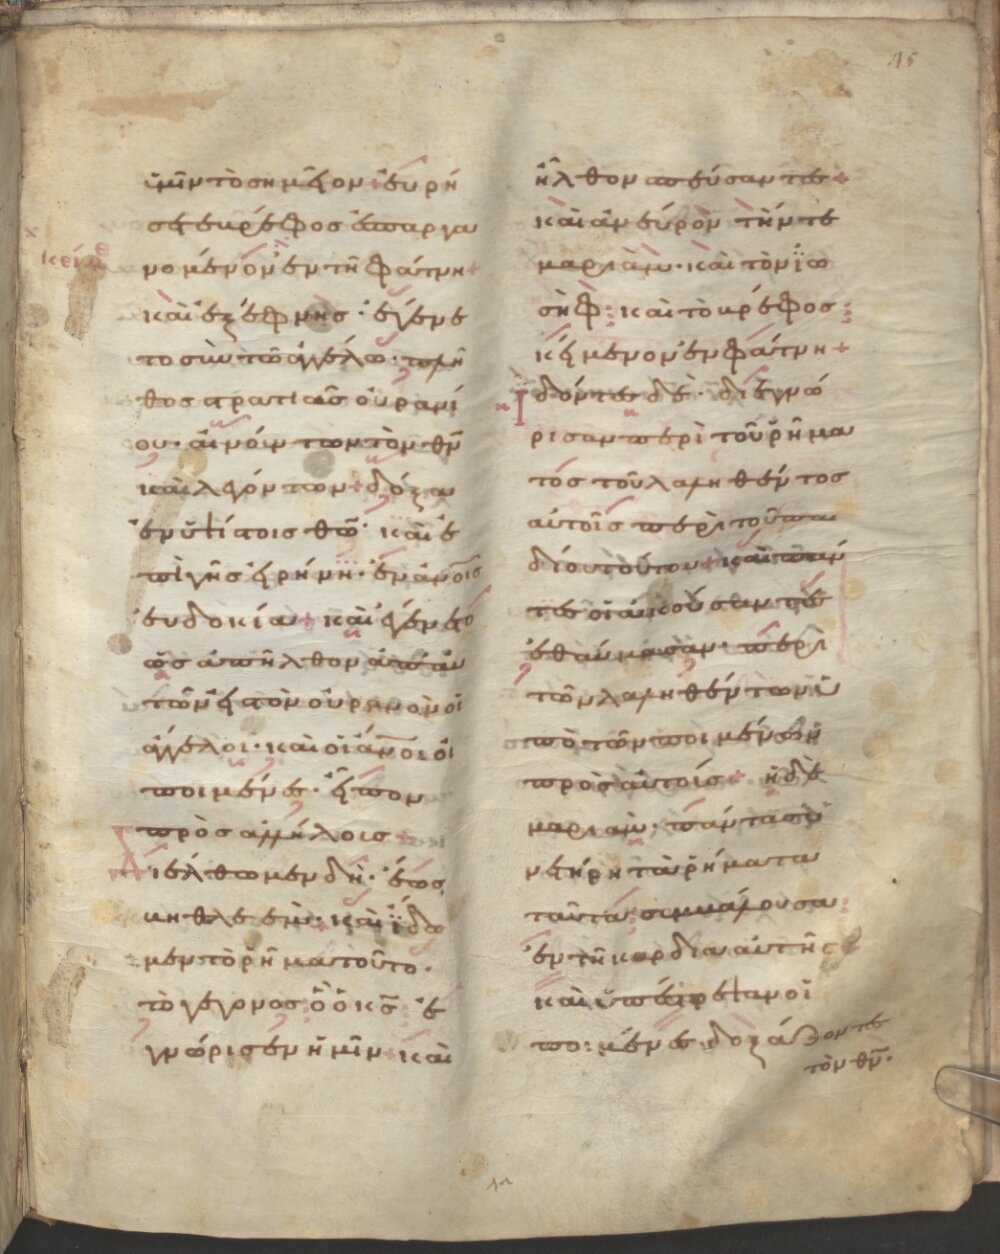 15
ὑμῖν τὸ σημεῖον· εὑρή
σετε βρέφος ἐσπαργα
νομένον ἐν τῆ φάτνη+
κείμε
καὶ ἐξέφνης· ἐγένε
το σὺν τῶ ἀγγέλω· πλῆ
θος στρατιᾶς οὐρανί
ου· αἰνούντων τὸν θν
καὶ λεγόντων+ δόξα
ἐν ὑψίστοις θω· καὶ ἐ
πὶ γῆς εἰρήνη· ἐν ἀνοις
εὐδοκία+ καὶ ἐγένετο
ὡς ἀπῆλθον ἀπ' αὐ
τῶν εἰς τὸν οὐρανὸν οἱ
ἄγγελοι· καὶ οἱ ἀνοι οἱ
ποιμένες· εἶπον
πρὸς ἀλλήλοις+
Διέλθωμεν δὴ· ἕως
βηθλεέμ· καὶ ἴδω
μεν τὸ ρῆμα τοῦτο·
τὸ γεγονος· ὃ ὁ κς ἐ
γνώρισεν ἡμῖν+ καὶ
ἦλθον σπεύσαντες+
καὶ ἀνεύρον τήν τε
μαριὰμ· καὶ τὸν ἰω
σὴφ· καὶ τὸ βρέφος
κείμενον ἐν φάτνη+
Ἰδόντες δὲ· διεγνώ
ρισαν περὶ τοῦ ρῆμα
τός τοῦ λαληθέντος
αὐτοῖς περὶ τοῦ παι
δίου τούτου+ καὶ πάν
τες οἱ ἀκούσαντες
ἐθαύμασαν· περὶ
τῶν λαληθέντων ὑ
πὸ τῶν ποιμένων
πρὸς αὐτοίς+ ἡ δὲ
μαριὰμ· πάντα συ
νετήρη τὰ ρήματα
ταῦτα· συμβάλουσα
ἐν τῆ καρδία αὐτῆς
καὶ ὑπέστρεψαν οἱ
ποιμένες· δοξάζοντες
τὸν θν·